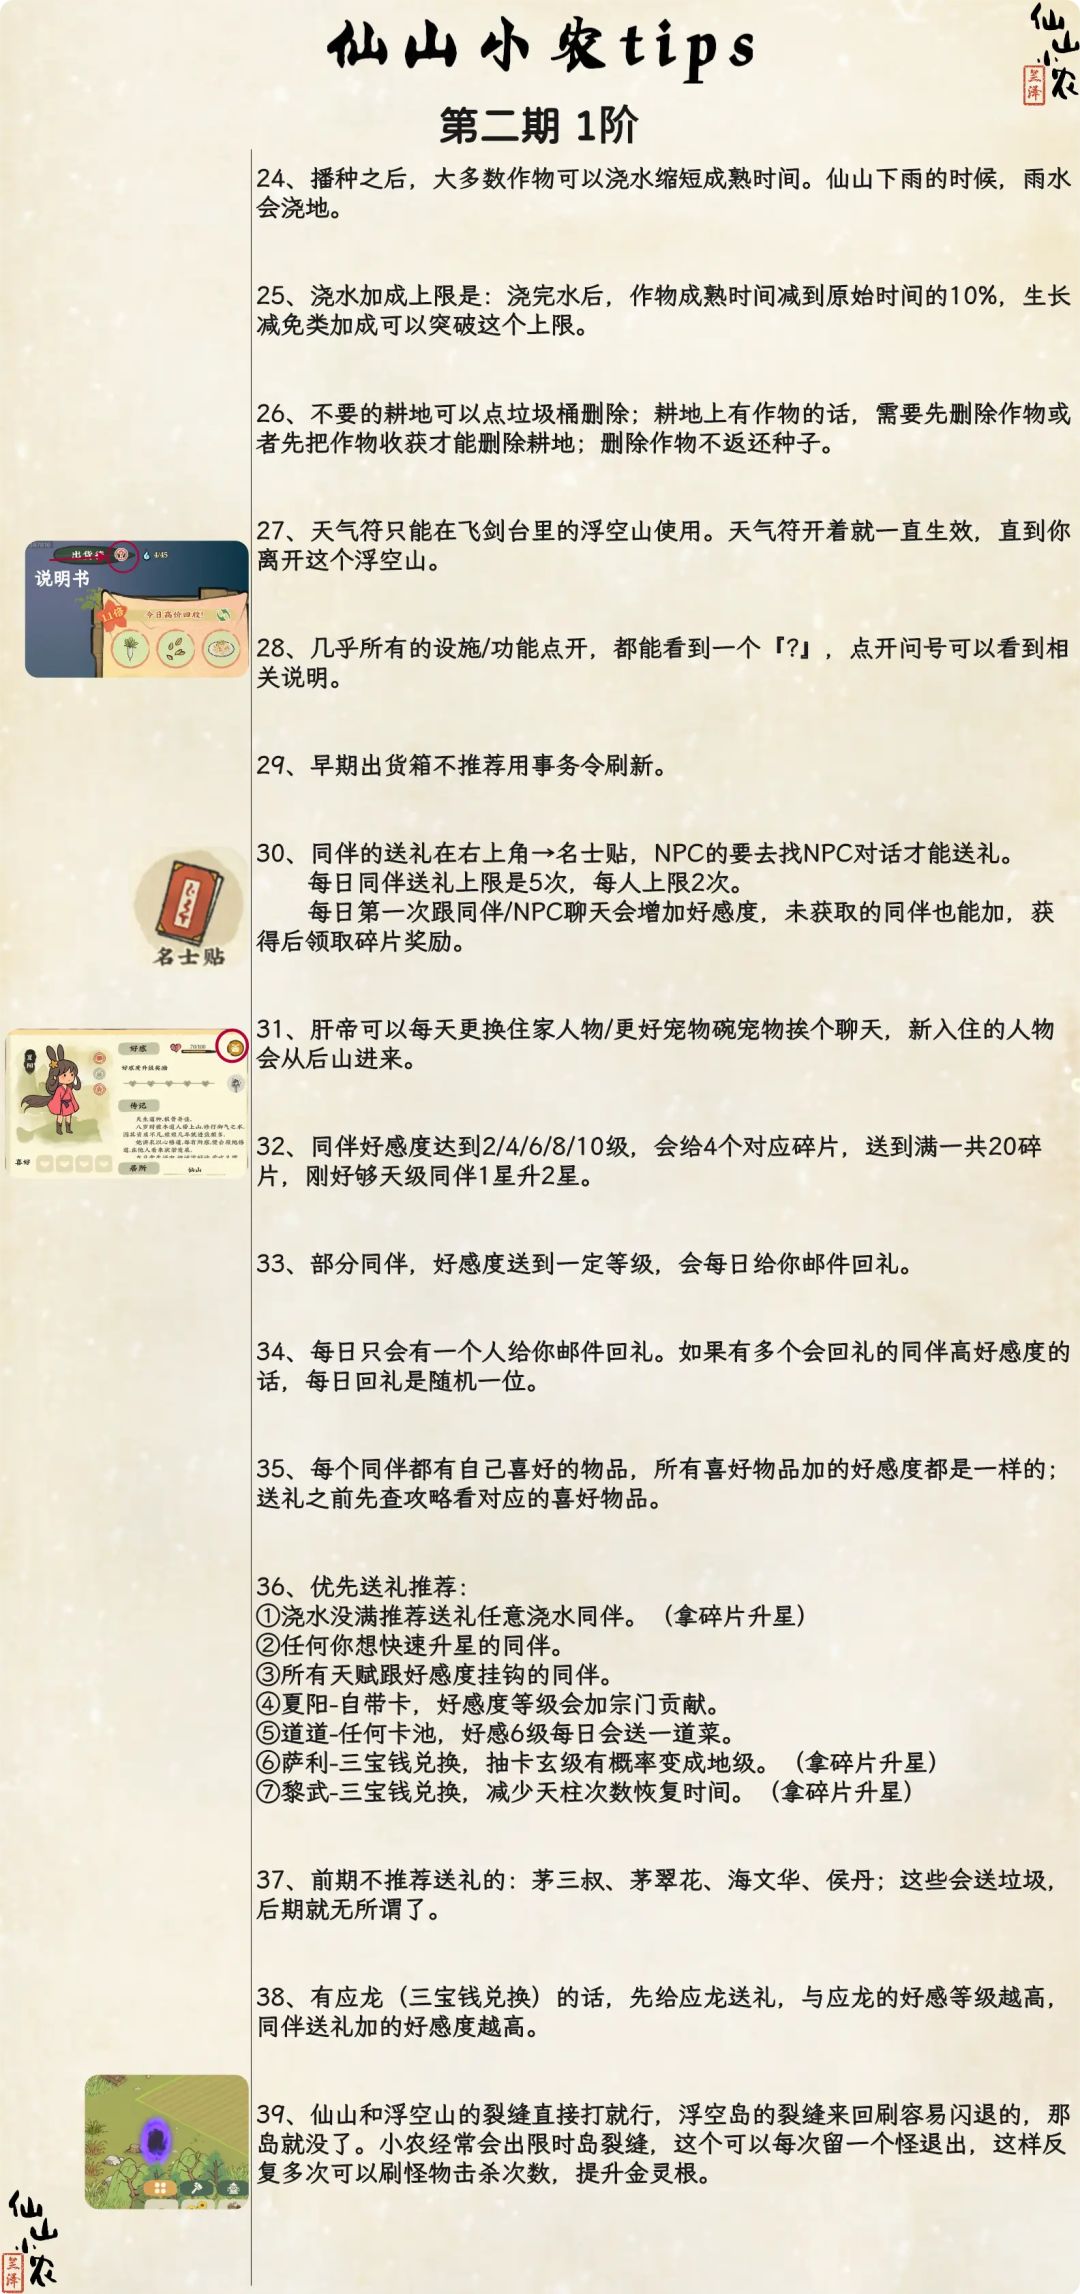 仙山小农tips
仙山小农
兰泽
第二期 1阶
24、播种之后，大多数作物可以浇水缩短成熟时间。仙山下雨的时候，雨水
会浇地。
25、浇水加成上限是：浇完水后，作物成熟时间减到原始时间的10%，生长
减免类加成可以突破这个上限。
26、不要的耕地可以点垃圾桶删除；耕地上有作物的话，需要先删除作物或
者先把作物收获才能删除耕地；删除作物不返还种子。
27、天气符只能在飞剑台里的浮空山使用。天气符开着就一直生效，直到你
离开这个浮空山。
出货箱
4/45
说明书
11倍
今日高价回收！
28、几乎所有的设施/功能点开，都能看到一个『?』，点开问号可以看到相
关说明。
29、早期出货箱不推荐用事务令刷新。
30、同伴的送礼在右上角→名士贴，NPC的要去找NPC对话才能送礼。
每日同伴送礼上限是5次，每人上限2次。
每日第一次跟同伴/NPC聊天会增加好感度，未获取的同伴也能加，获
得后领取碎片奖励。
名士贴
31、肝帝可以每天更换住家人物/更好宠物碗宠物挨个聊天，新入住的人物
会从后山进来。
夏阳
好感
好感度升级奖励
传记
喜好
居所
仙山
32、同伴好感度达到2/4/6/8/10级，会给4个对应碎片，送到满一共20碎
片，刚好够天级同伴1星升2星。
33、部分同伴，好感度送到一定等级，会每日给你邮件回礼。
34、每日只会有一个人给你邮件回礼。如果有多个会回礼的同伴高好感度的
话，每日回礼是随机一位。
35、每个同伴都有自己喜好的物品，所有喜好物品加的好感度都是一样的；
送礼之前先查攻略看对应的喜好物品。
36、优先送礼推荐：
①浇水没满推荐送礼任意浇水同伴。（拿碎片升星）
②任何你想快速升星的同伴。
③所有天赋跟好感度挂钩的同伴。
④夏阳-自带卡，好感度等级会加宗门贡献。
⑤道道-任何卡池，好感6级每日会送一道菜。
⑥萨利-三宝钱兑换，抽卡玄级有概率变成地级。（拿碎片升星）
⑦黎武-三宝钱兑换，减少天柱次数恢复时间。（拿碎片升星）
37、前期不推荐送礼的：茅三叔、茅翠花、海文华、侯丹；这些会送垃圾，
后期就无所谓了。
38、有应龙（三宝钱兑换）的话，先给应龙送礼，与应龙的好感等级越高，
同伴送礼加的好感度越高。
39、仙山和浮空山的裂缝直接打就行，浮空岛的裂缝来回刷容易闪退的，那
岛就没了。小农经常会出限时岛裂缝，这个可以每次留一个怪退出，这样反
复多次可以刷怪物击杀次数，提升金灵根。
仙山小农
兰泽